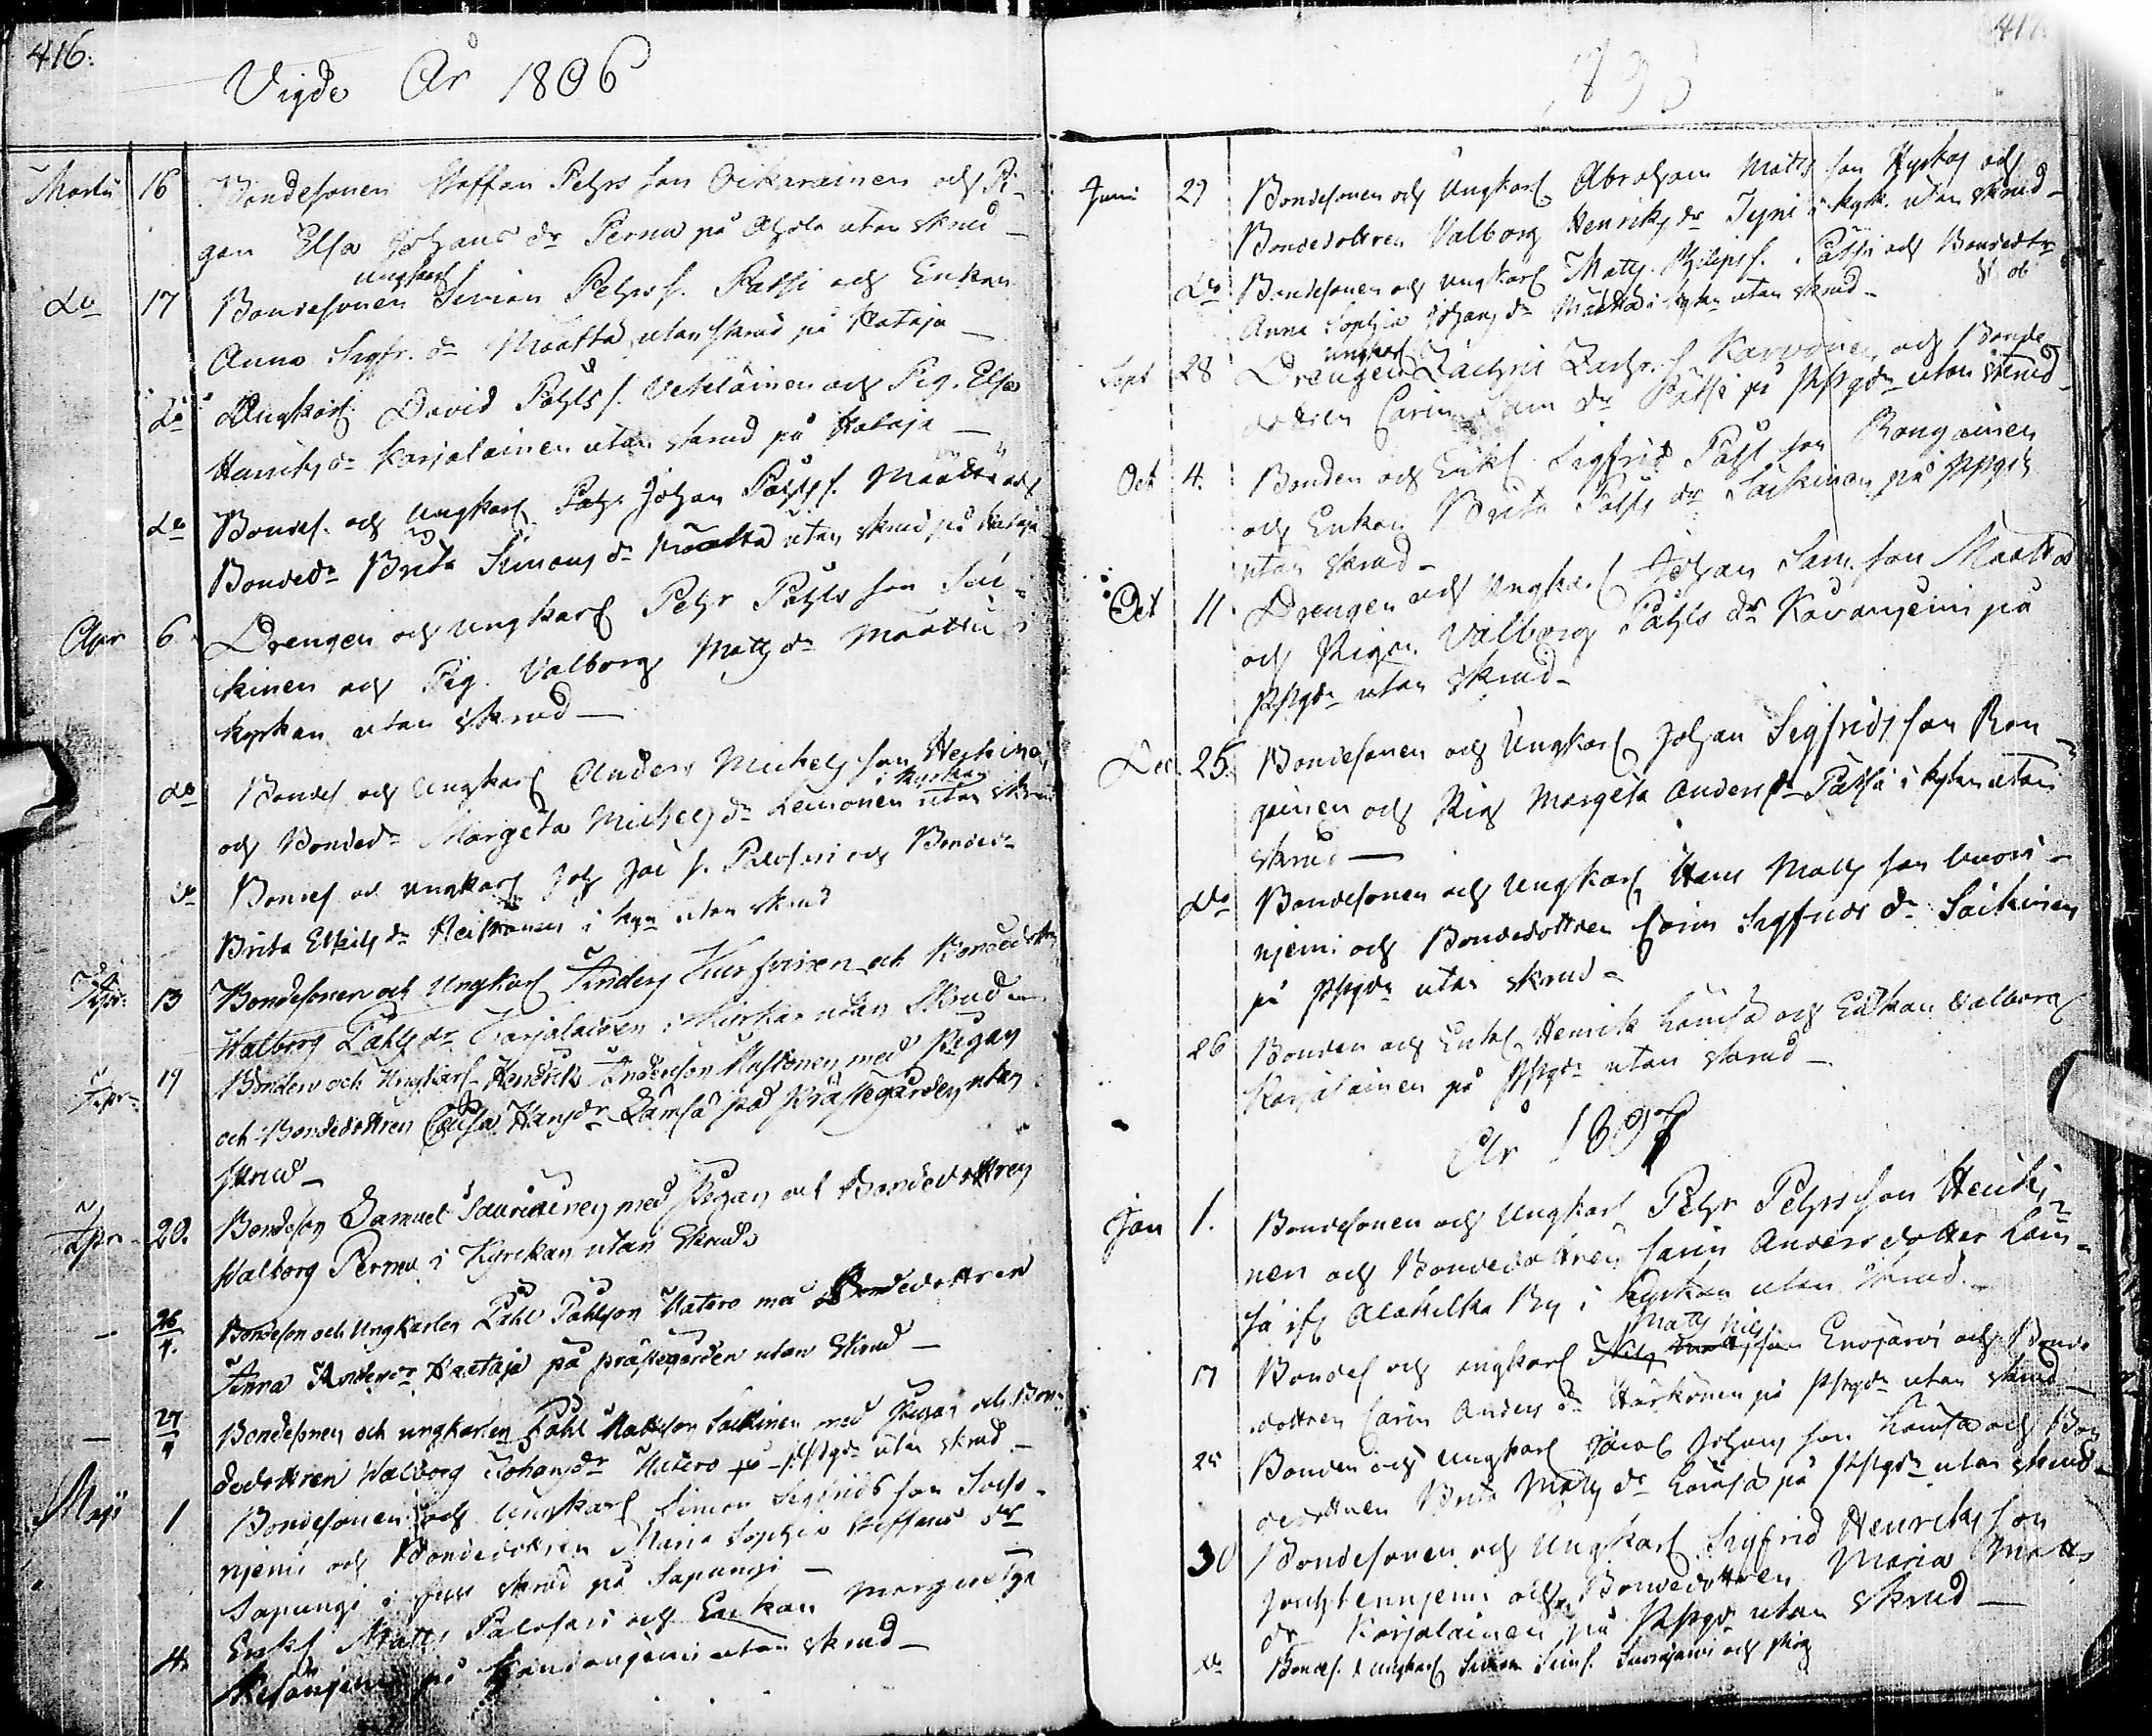 416.
Vigde År 1806
Martii 16 Bondesonen Staffan Pehrs son Oikarainen och Pi-
gan Elsa Johans dr Perna på Ahola utan skrud
ungkarl
do 17 Bondesonen Simon Pehrs s. Patsi och Enkan
Anna Sigfr. dr Määttä utan skrud på Kataja
do Ungkarl David Påhls s. Vehiläinen och Pig. Elsa
Henriks dr Karjalainen utan skrud på Kataja
do Bondes. och Ungkarl Johan Påhls s. Määttä och
Bonded. Brita Simons dr Määttä utan skrud på Kataja
Apr 6 Drengen och ungkarl Pehr Påhls son Säi-
kinen och Pig. Valborg Matts dr Määttä i
kyrkan utan skrud
do Bondes och Ungkarl Anders Michels son
i kyrkan
och Bonded. Margeta Michels dr Leinonen utan skrud
do Bondes och ungkarl Joh s. Palosari och Bonded
Brita Eskils dr i utan skrud
Apr. 13 Bondesonen och Ungkarl Anders och Bondedottren
Walborg Påhls dr Karjalainen i Kirkan utan Skrud
Apr. 19 Bonden och Ungkarl Hendrik Anderson Mustonen med Pigan
och Bondedottren Hans dr Lämsä på Prästegården utan
skrud
Apr. 20. Bondeson Samuel med Pigan och Bondedottren
Walborg Perna i Kyrckan utan Skrud
26/4. Bondeson och Ungkarlen Påhl Påhlson Matero med Bondedottren
Anna Anders dr Kaetaja på prästegården utan Skrud
27/4 Bondesonen och ungkarlen Påhl Mattsson Säikinen med Pigan och Bon-
dedottren Walborg Johans dr Matero på Pstgdn utan skrud
Maji 1 Bondesonen och Ungkarl Simon Sigfrids son
niemi och Bondedottren Maria Sophia Staffans dr
Sapungi i skrud på Sapungi
4. Enkl Matts Palosari och Enkan Margaretha
på utan skrud
417.
1806
Juni 29 Bondesonen och Ungkarl Abraham Matts son och
Bondedottren Valborg Henriks dr Tyni i kyrk. utan skrud
do Bondesonen och ungkarl Matts Philips s. Pätsi och Bondedtr
Anna Sophia Johans dr Määttä i kyrkan utan skrud
ungkarl
Sept 28 Drengen Zachris Zachr. s Karvonen och Bonde-
dottren Carin Sam dr Pätsi på Pstgdn utan skrud
Oct 4. Bonden och Enkl. Sigfrid Påhl son Rongainen
och Enkan Brita Påhls dr Säikinen på Pstgdn
utan skrud
Oct 11 Drengen och Ungkarl Johan Sam. son Määttä
och Pigan Valborg Påhls dr Kavanjemi på
Pstgdn utan skrud
Dec. 25. Bondesonen och Ungkarl Johan Sigfrids son Ron-
gainen och Pig Margeta Anders dr Pätsi i kyrkan utan
skrud
do Bondesonen och Ungkarl Hans Matts son Vuori-
njemi och Bondedottren Carin Sigfrids dr Säikinen
på Pstgdn utan skrud
26 Bonden och Enkl Henrik Lämsä och Enkan Valborg
Karjalainen på Pstgdn utan skrud
År 1807
Jan 1. Bondesonen och Ungkarl Pehr Pehrs son Heiki-
nen och Bondedottren Carin Anders dotter Läm-
sä if Alakilka By i kyrkan utan skrud
Matts Nils
17 Bondes och ungkarl son Enojärvi och Bonde
dottren Carin Anders dr Härkönen på Pstgdn utan skrud
25 Bonden och Ungkarl Jacob Johans son Lämsä och Bon
dedottren Brita Matts dr Lämsä på Pstgdn utan skrud
30 Bondesonen och Ungkarl Sigfrid Henriks son
och Bondedottren Maria Matts
dr Karjalainen på Pstgdn utan skrud
do Bondes. & ungkarl Simon Sims. Suorajärvi och Pig